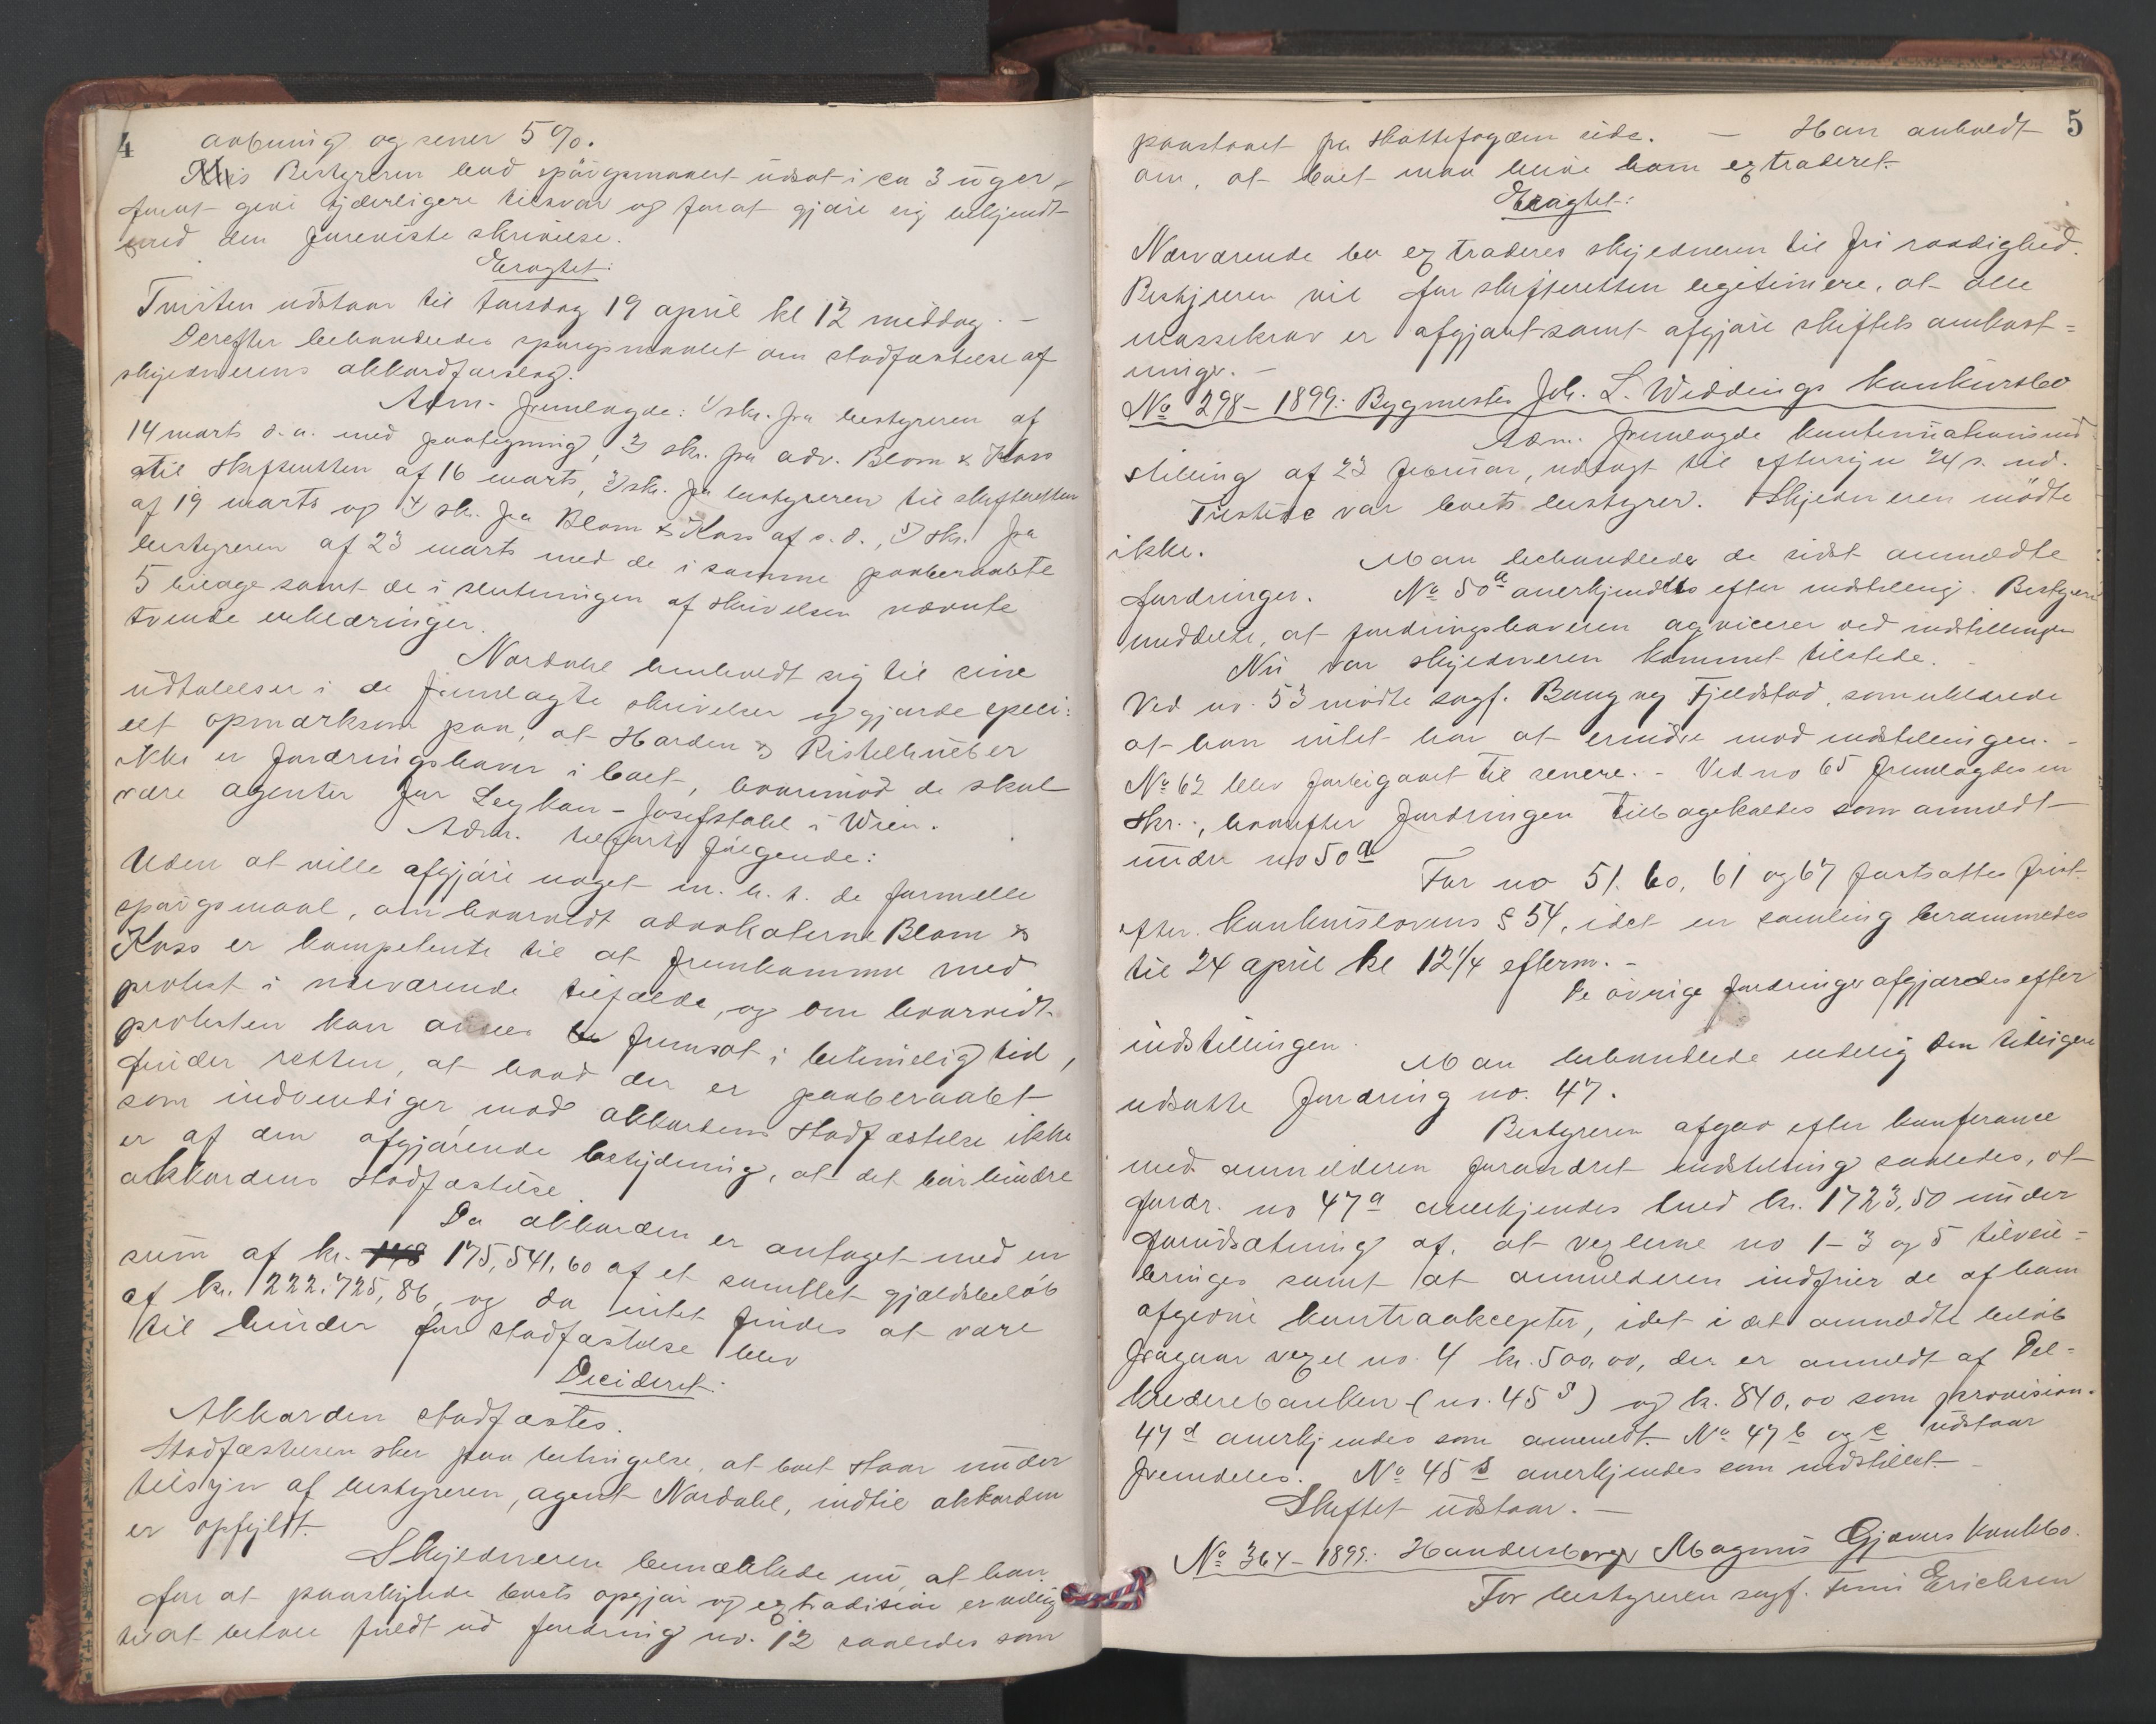 4
aabning og senere 5 %.
Bestyreren bad spörgsmaalet udsat i ca 3 uger,
forat give tjenligere tilsvar og forat gjöre sig bekjendt
med den foreviste skrivelse.
Eragtet:
Tvisten udstaar til torsdag 19 april kl 12 middag. –
Derefter behandledes spörgsmaalet om stadfæstelse af
skyldnerens akkordforslag.
Adm. fremlagde: 1) skr. fra bestyreren af
14 marts d. a. med paategning, 2) skr. fra adv. Blom & Kass
til skifteretten af 16 marts, 3) skr. fra bestyreren til skifteretten
af 19 marts og 4) skr. fra Blom & Kass af s. d., 5) skr. fra
bestyreren af 23 marts med de i samme paaberaabte
5 bilage samt de i slutningen af skrivelsen nævnte
tvende erklæringer.
Nordahl henholdt sig til sine
udtalelser i de fremlagte skrivelser og gjorde speci-
elt opmærksom paa, at Harden & Ristelhueber
ikke er fordringshaver i boet, hvorimod de skal
være agenter for Leykam-Josefsthal i Wien.
Adm. tilförte fölgende:
Uden at ville afgjöre noget m. h. t. de formelle
spörgsmaal, om hvorvidt advokaterne Blom &
Kass er kompetente til at fremkomme med
protest i nærværende tilfælde, og om hvorvidt
protesten kan ansees fremsat i betimelig tid,
finder retten, at hvad der er paaberaabt
som indvendiger mod akkordens stadfæstelse ikke
er af den afgjörende betydning, at det bör hindre
akkordens stadfæstelse.
Da akkorden er antaget med en
sum af kr. 175,541,60 af et samlet gjældsbelöb
af kr. 222.725,86, og da intet findes at være
til hinder for stadfæstelse blev
Decideret:
Akkorden stadfæstes.
Stadfæstelsen sker paa betingelse, at boet staar under
tilsyn af bestyreren, agent Nordahl, indtil akkorden
er opfyldt.
Skyldneren bemærkede nu, at han
for at paaskynde boets opgjör og extradision er villig
til at betale fuldt ud fordring no. 12 saaledes som
5
paastaaet fra skattefogdens side. – Han anholdt
om, at boet maa blive ham extraderet.
Eragtet:
Nærværende bo extraderes skyldneren til fri raadighed.
Bestyreren vil for skifteretten legitimere, at alle
massekrav er afgjort samt afgjöre skiftets omkost-
ninger. –
No 298 – 1899: Bygmester Joh. L. Widdings konkursbo
Adm. fremlagde kontinuationsind-
stilling af 23 februar, udlagt til eftersyn 24 s. md.
Tilstede var boets bestyrer. Skyldneren mödte
ikke.
Man behandlede de sidst anmeldte
fordringer. No 50a anerkjendtes efter indstilling. Bestyreren
meddelte, at fordringshaveren acviecerer ved indstillingen
Nu var skyldneren kommet tilstede.
Ved no. 53 mödte sagf. Baug og Fjeldstad, som erklærede
at han intet har at erindre mod indstillingen. –
No 62 blev forbigaaet til senere. – Ved no 65 fremlagdes en
skr., hvorefter fordringen tilbagekaldes som anmeldt
under no 50a
For no 51. 60, 61 og 67 fastsattes frist
efter konkurslovens § 54, idet en samling berammedes
til 24 april kl 12¼ efterm. –
De övrige fordringer afgjordes efter
indstillingen.
Man behandlede endelig den tidligere
udsatte fordring no. 47.
Bestyreren afgav efter konferance
med anmelderen forandret indstilling saaledes, at
fordr. no 47a anerkjendes med kr. 1723,50 under
forudsætning af, at vexlerne no 1–3 og 5 tilveie-
bringes samt at anmelderen indfrier de af ham
afgivne kontraakcepter, idet i det anmeldte belöb
fragaar vexel no. 4 kr. 500,00, der er anmeldt af Del-
krederebanken (no. 45 s) og kr. 840,00 som provision.
47d anerkjendes som anmeldt. No 47b og c udstaar
fremdeles. No 45 s anerkjendes som indstillet. –
Skiftet udstaar. –
No 364 – 1899: Handelsborger Magnus Gjævers konkbo.
For bestyreren sagf. Erichsen